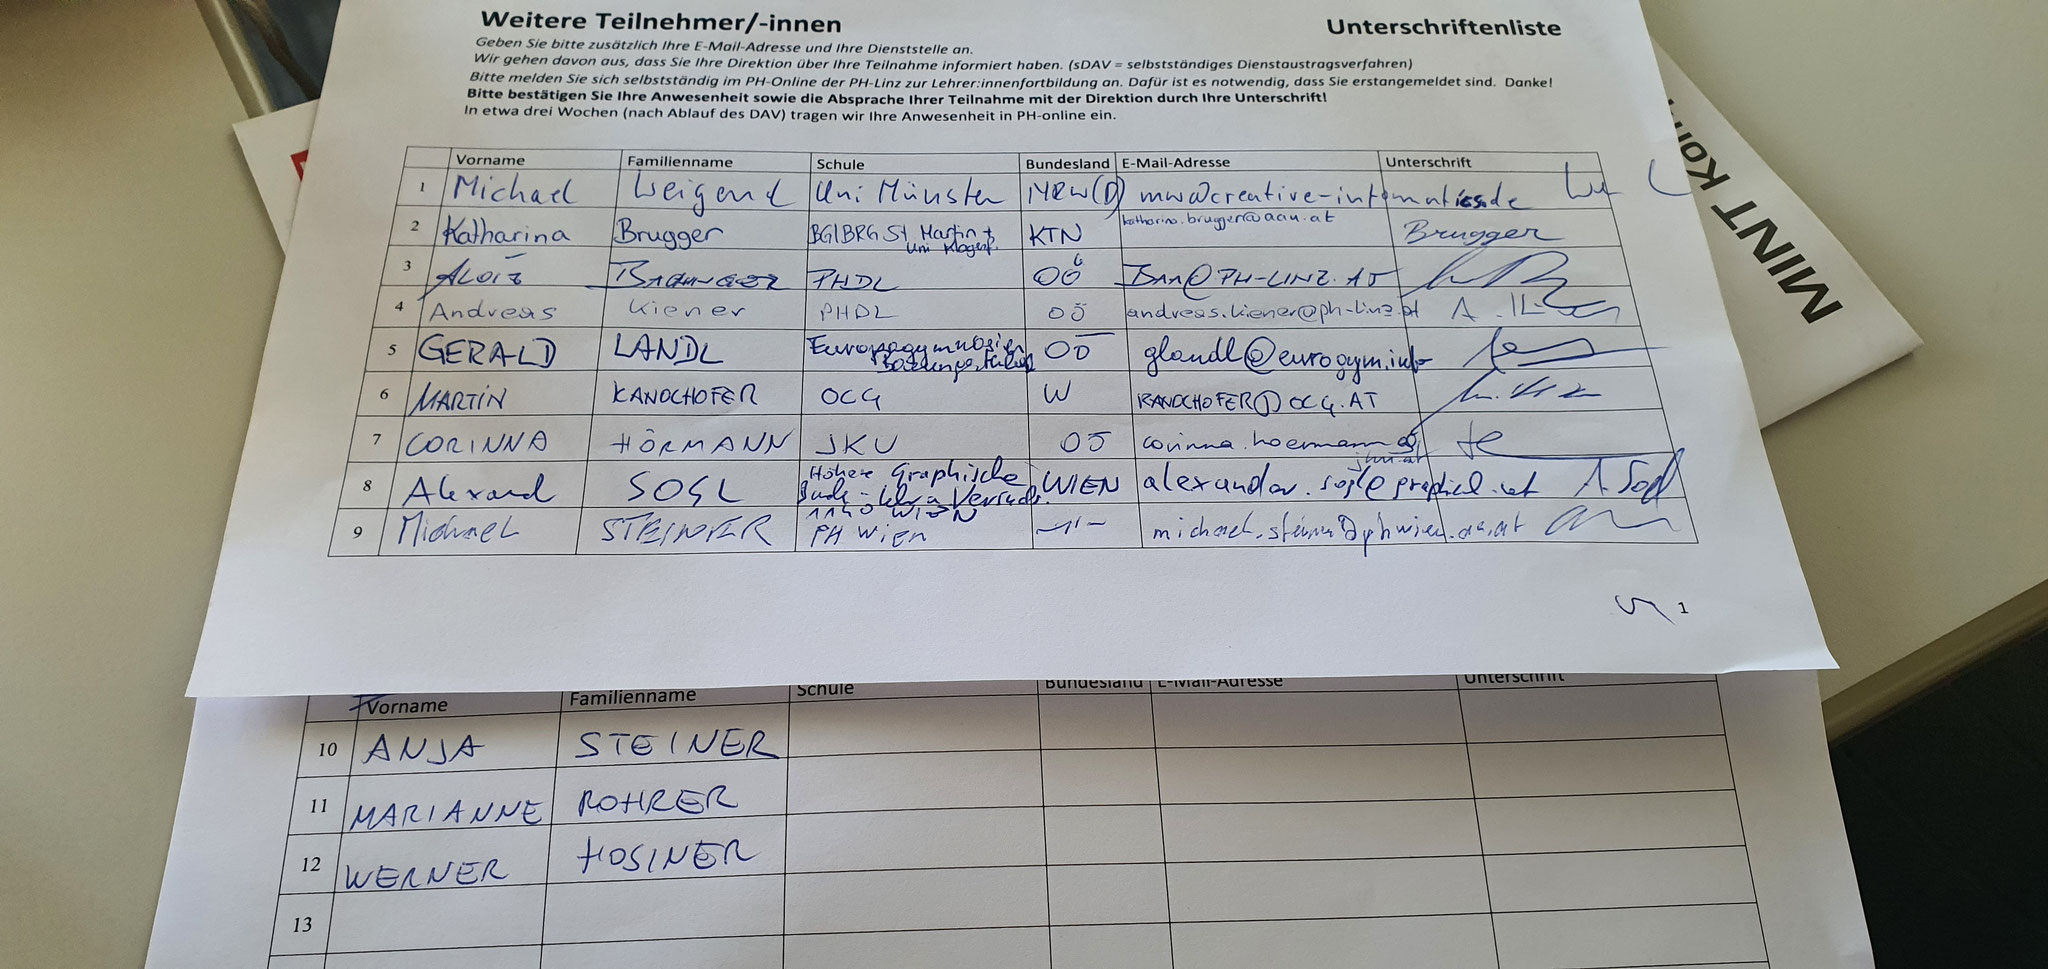 Weitere Teilnehmer/-innen Unterschriftenliste
Geben Sie bitte zusätzlich Ihre E-Mail-Adresse und Ihre Dienststelle an.
Wir gehen davon aus, dass Sie Ihre Direktion über Ihre Teilnahme informiert haben. (sDAV = selbstständiges Dienstaustragsverfahren)
Bitte melden Sie sich selbstständig im PH-Online der PH-Linz zur Lehrer:innenfortbildung an. Dafür ist es notwendig, dass Sie erstangemeldet sind. Danke!
Bitte bestätigen Sie Ihre Anwesenheit sowie die Absprache Ihrer Teilnahme mit der Direktion durch Ihre Unterschrift!
In etwa drei Wochen (nach Ablauf des DAV) tragen wir Ihre Anwesenheit in PH-online ein.
Vorname Familienname Schule Bundesland E-Mail-Adresse Unterschrift
1 Michael Weigend Uni Münster NRW(D) mw@creative-informatics.de
2 Katharina Brugger BG/BRG St. Martin + KTN katharina.brugger@aau.at Brugger
Uni Klagenf.
3 Alois PHDL OÖ BAA@PH-LINZ.AT
4 Andreas Kiener PHDL OÖ andreas.kiener@ph-linz.at
5 GERALD LANDL Europagymnasium OÖ glandl@eurogym.info
6 MARTIN KANDLHOFER OCG W KANDLHOFER@OCG.AT
7 CORINNA HÖRMANN JKU OÖ corinna.hoermann@
jku.at
8 Alexand SOGL Höhere Graphische WIEN A. Sogl
1140 WIEN
9 Michael STEINER PH Wien -"-
1
MINT
Vorname Familienname Schule Bundesland E-Mail-Adresse Unterschrift
10 ANJA STEINER
11 MARIANNE ROHRER
12 WERNER HOSINER
13